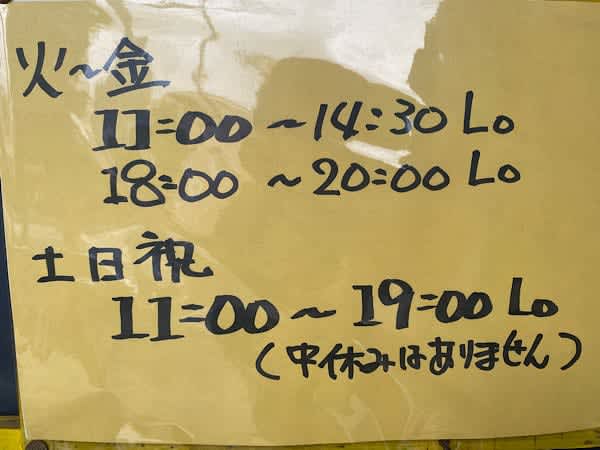 火〜金
11:00 〜14:30 Lo
18:00 〜20:00 Lo
土日祝
11:00〜19:00 Lo
(中休みはありません)